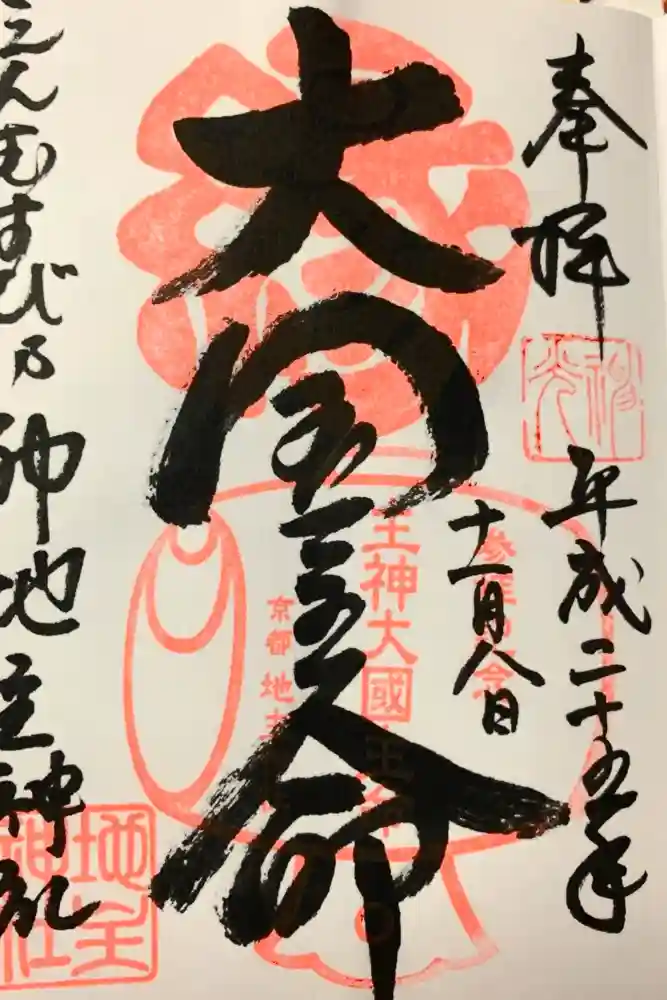 奉拝
平成二十五年
十一月八日
大国主命
えんむすび乃神地主神社
主神大國主命
京都地主
地主神社